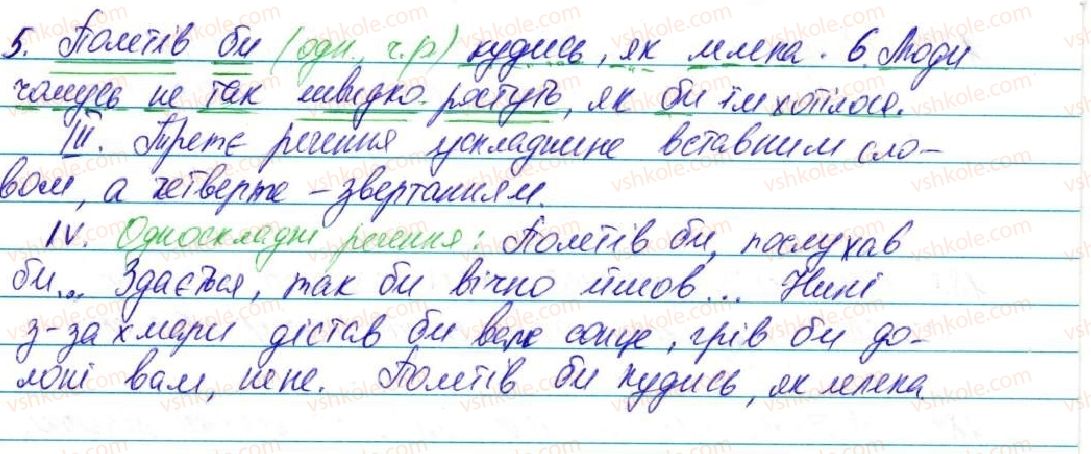 5. Полетів би (одн., ч.р) кудись, як лелека. 6 Люди
чомусь не так швидко ростуть, як би їм хотілося.
III. Третє речення ускладнене вставним сло-
вом, а четверте – звертанням.
IV. Односкладні речення: Полетів би, послухав
би... Здається, так би вічно йшов... Нині
з-за хмари дістав би вам сонце, грів би до-
лоні вам, нене. Полетів би кудись, як лелека.